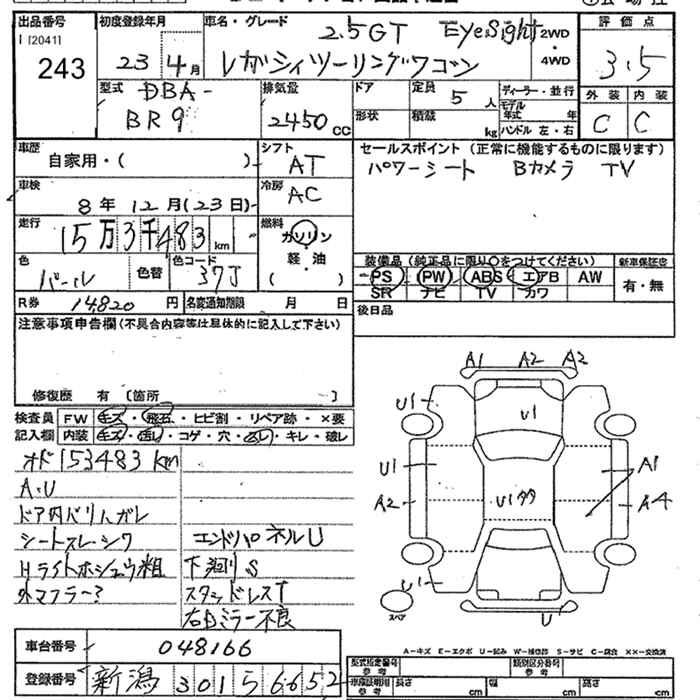 出品番号
[2041]
243
初度登録年月
23 4月
車名・グレード
2.5GT EyeSight
レガシィツーリングワゴン
2WD
・
4WD
評価点
3.5
外装 内装
C C
型式
DBA-
BR9
排気量
2450cc
ドア
形状
定員 5人
積載 kg
ディーラー・並行
モデル年式 年
ハンドル 左・右
車歴
自家用・( )
シフト
AT
セールスポイント(正常に機能するものに限ります)
パワーシート Bカメラ TV
車検
8年12月(23日)
冷房
AC
走行
15万3千483km
燃料
ガソリン
・
軽・油
( )
色
パール
色替
色コード
37J
装備品(純正品に限り○をつけてください)
新車保証書
PS PW ABS エアB AW
SR ナビ TV カワ
有・無
R券 14,820円
名変通知期限 月 日
後日品
注意事項申告欄(不具合内容等は具体的に記入して下さい)
修復歴 有 〔箇所 〕
検査員 FW キズ・飛石・ヒビ割・リペア跡・×要
記入欄 内装 キズ・汚レ・コゲ・穴・スレ・キレ・破レ
オド153483km
A・U
ドア内バリハガレ
シートスレ・シワ
Hライトホシュウ粗
外マフラー?
エンドパネルU
下廻りS
スタッドレスT
右Dミラー不良
A1 A2 A2
U1 U1
U1 A1
A2 U1多 A4
U1
U
スペア
A-キズ E-エクボ U-凹み W-補修跡 S-サビ C-腐食 ××-交換済
車台番号 048166
登録番号 新潟 301 ら 6652
型式指定番号
参考
類別区分番号
参考
車検証明書
参考
長さ cm
幅 cm
高さ cm